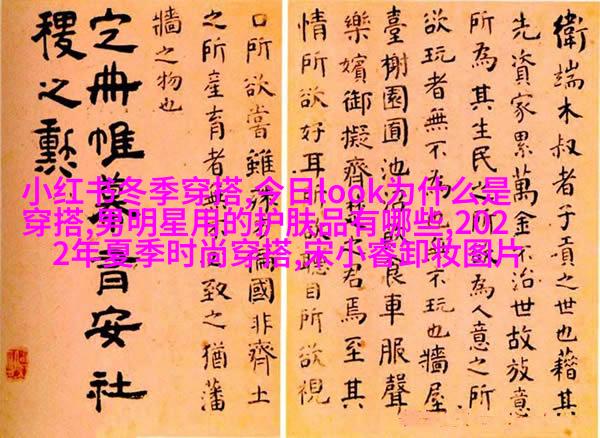 小红书冬季穿搭,今日look为什么是
穿搭,男明星用的护肤品有哪些,202
2年夏季时尚穿搭,宋小睿卸妆图片
衛端木叔者子貢之世也藉其
先資家累萬金不治世故放意
所為其生民之所欲為人意之所
欲玩者無不為也無不玩也牆屋
臺榭園囿池沼飲食車服聲
樂嬪御擬齊楚之君焉至其
情所欲好耳所欲聽目所欲視
口所欲嘗雖殊方偏國非齊土
之所產育者無不必致之猶藩
牆之物也
定冊帷幕有安社
稷之勳